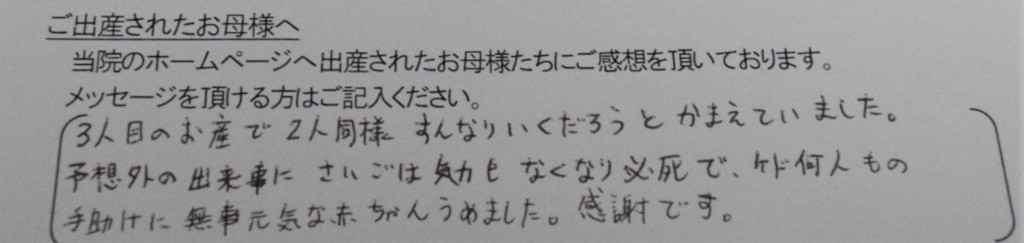 ご出産されたお母様へ
当院のホームページへ出産されたお母様たちにご感想を頂いております。
メッセージを頂ける方はご記入ください。
3人目のお産で2人同様すんなりいくだろうとかまえていました。
予想外の出来事にさいごは気力もなくなり必死で、ケド何人もの
手助けに無事元気な赤ちゃんうめました。感謝です。